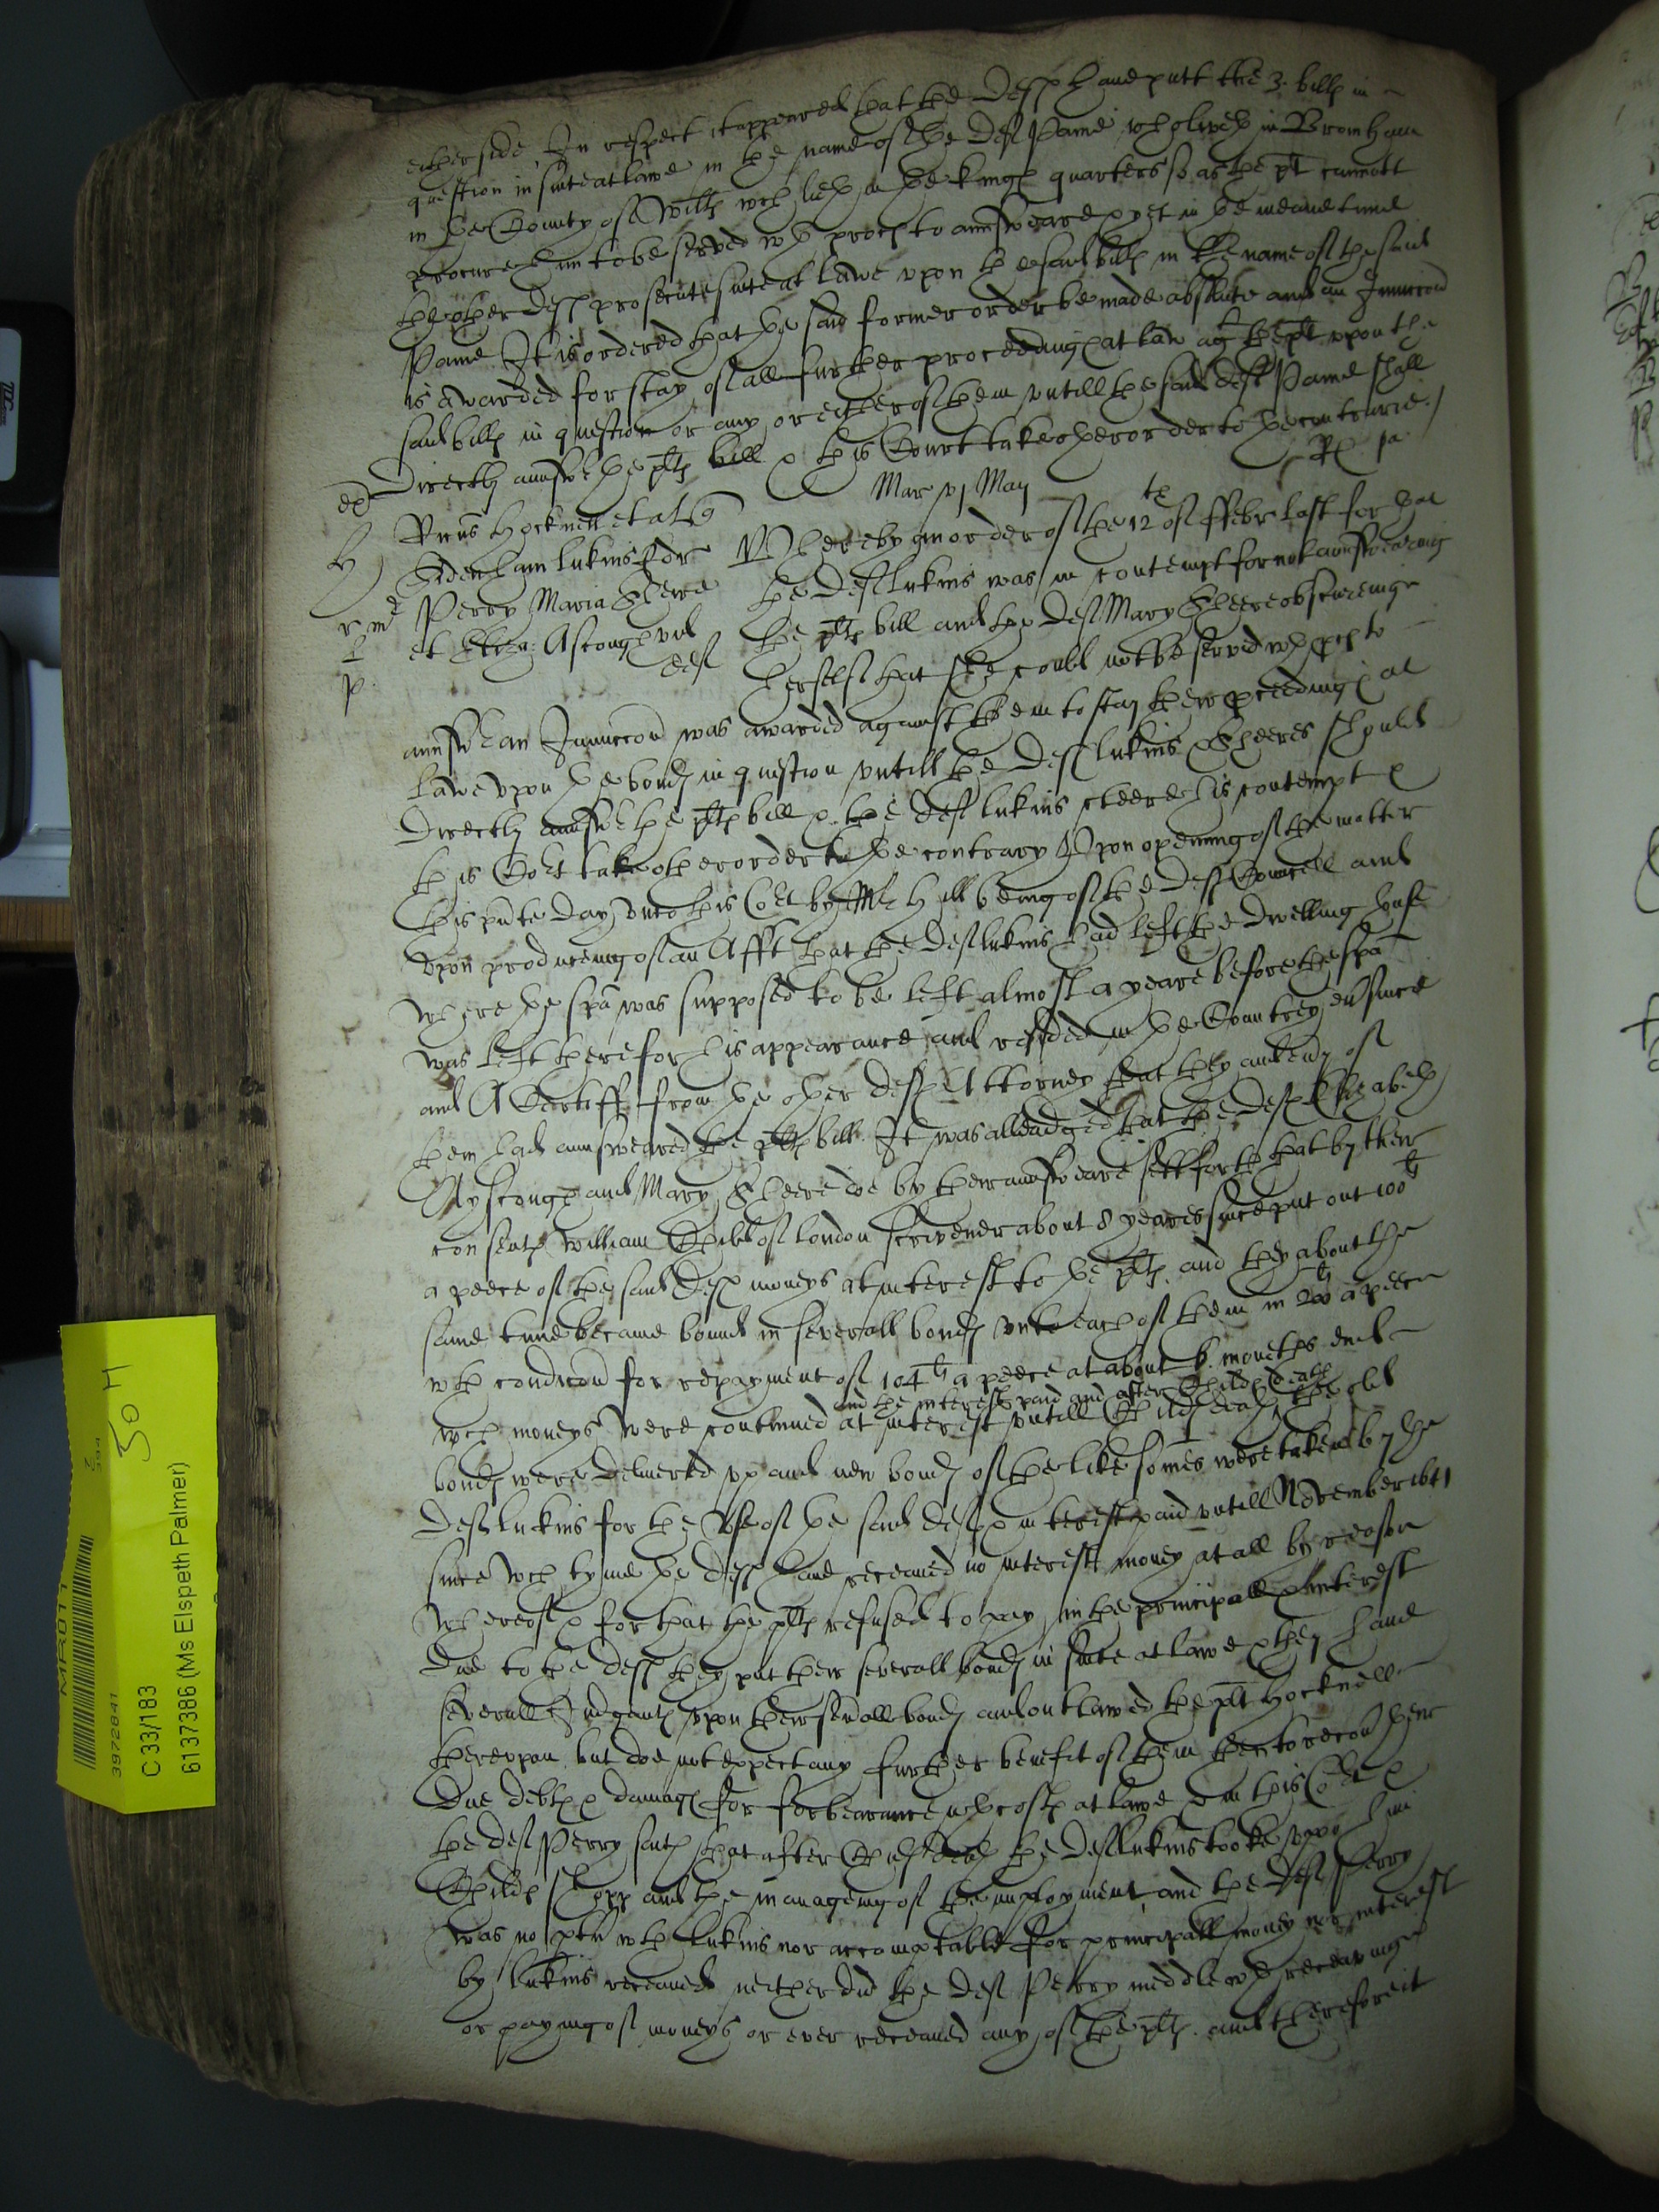 either side In respect it appeared that the Deftes have putt the 3. billes in
question in suite at lawe in the name of the Deft Pame who liveth in Bromham
in the County of Wiltes wch lieth in the kings quarters so as the plt cannott
procure him to be served wth proces to answeare & yet in the meane time
the other Deftes prosecute suite at lawe vpon the said billes in the name of the said
Pame It is ordered that the said former order be made absolute and an Iniuncion
is awarded for stay of all further proceedings at law agt the plt vpon the
said billes in question or any or either of them vntill the said deft Pame shall
Directly answere the pltes bill & this Court take other order to the contrarie./
Mar vj Maij
Hocknell et al
Sidenham Lukins
Perry Maria Sheere
et Eliza: Ascough vid
deft
Whereby an order of the 12th of Febr last for that
the Deft Lukins was in contempt for not answearing
the pltes bill and the Deft Mary Sheere obscureing
herself that she could not be served wth proces to
answere an Iniuncion was awarded against them to stay their proceedings at
lawe vpon the bondes in question vntill the Deftes Lukins & Sheeres should
Directly answere the pltes bill & the Deft Lukins cleere his contempt &
this Cort take other order to the contrary Vpon opening of the matter
this pnte Day vnto this Cort by Mr Hill being of the Deftes Councell and
vpon produceing of an Afft that the Deft Lukins had left the Dwelling house
where the spa was supposed to be left almost a yeare before the spa
was left there for his appearance and resided in the Countrey eu since
and A Certiff from the other Deftes Attorney that they and eny of
them had answeared the pltes bill. It was alleadged that the Deftes Elizabeth
Ayscough and Mary Sheere doe by their answeare sett forth that by their
consents William Child of London scrivener about 8 yeares since put out 100li
a peece of the said Deftes moneys at interest to the pltes and they about the
same time became bound in severall bondes vnto each of them in 200li a peece
wth condicion for repayment of 104li a peece at about 6. moneths end
and the interest paid and after Childes death
wch moneys were continued at interest vntill Childes death the old
bondes were Delivered vp and new bondes of the like somes were taken by the
Deft Lukins for the vse of the said deftes & interest paid vntill November 1641
since wch tyme the deftes have received no interest money at all by reason
whereof & for that the pltes refused to pay in the principall & interest
Due to the Deftes they put their severall bondes in suite at lawe & they have
severall Iudgmts vpon their severall bondes and outlawed the plt Hocknell
therevpon but doe not expect any further benefit of them then to recover their
Due debtes & damages for forbearance wth costes at lawe & in this Cort &
the deft Perry saith that after Childes death the Deft Lukins tooke vpon him
Childes shopp and the manageing of the imployment and the Deft Perry
was no ptner wth Lukins nor accomptable for principall money nor interest
by Lukins received neither did the Deft Perry meddle wth receaving
or paying of moneys or ever received any of the pltes. and therefore it
39728241
C 33/183
6137386 (Ms Elspeth Palmer)
50 H